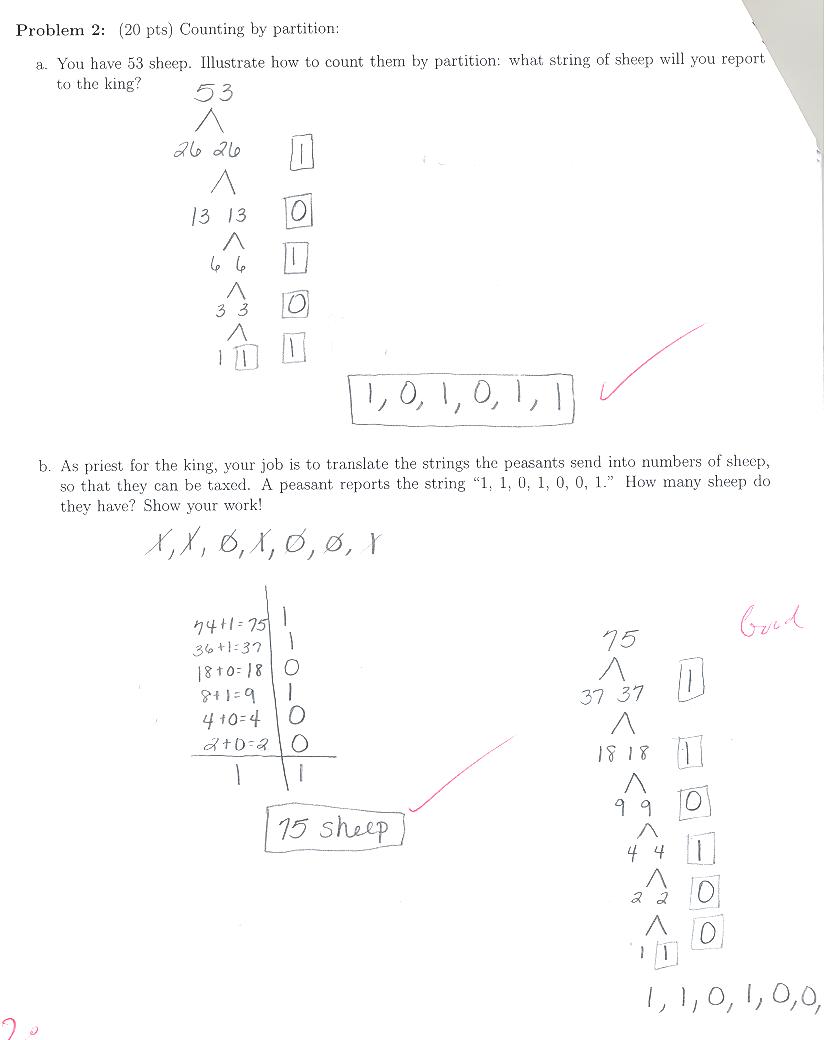 Problem 2: (20 pts) Counting by partition:
a. You have 53 sheep. Illustrate how to count them by partition: what string of sheep will you report
to the king?
53
26 26 1
13 13 0
6 6 1
3 3 0
1 1 1
1, 0, 1, 0, 1, 1
b. As priest for the king, your job is to translate the strings the peasants send into numbers of sheep,
so that they can be taxed. A peasant reports the string “1, 1, 0, 1, 0, 0, 1.” How many sheep do
they have? Show your work!
1, 1, 0, 1, 0, 0, 1
74+1=75 1
36+1=37 1
18+0=18 0
8+1=9 1
4+0=4 0
2+0=2 0
1 1
75 sheep
Good
75
37 37 1
18 18 1
9 9 0
4 4 1
2 2 0
1 1 0
1, 1, 0, 1, 0, 0,